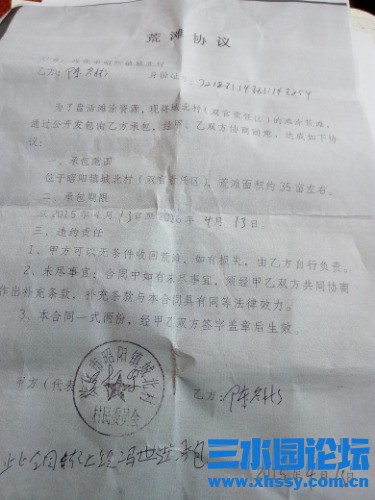 荒滩协议
甲方：昭阳镇城北村
乙方：陈 身份证号：
为了盘活滩涂资源，现将城北村（双官责任区）的滩涂荒滩，
通过公开发包由乙方承包，经甲、乙双方协商同意，达成如下协
议：
一、承包范围
位于昭阳镇城北村（双官责任区），荒滩面积约35亩左右。
二、承包期限
从2015年4月13日至20 年4月13日。
三、违约责任
1、甲方可以无条件收回荒滩，如有损失，由乙方自行负责。
2、未尽事宜：合同中如有未尽事宜，须经甲乙双方共同协商
作出补充条款，补充条款与本合同具有同等法律效力。
3、本合同一式两份，经甲乙双方签字盖章后生效。
甲方（代表
乙方：陈
兴化市昭阳镇城北村
村民委员会
此合同
2015年4月13日
三水园论坛
www.xhssy.com